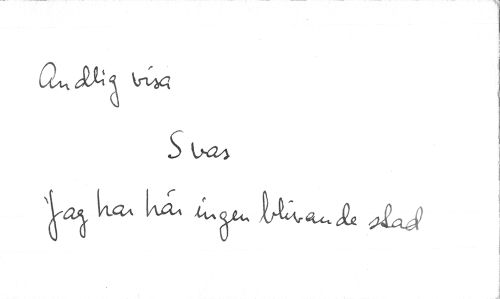 Andlig visa
Svas
Jag har här ingen blivande stad